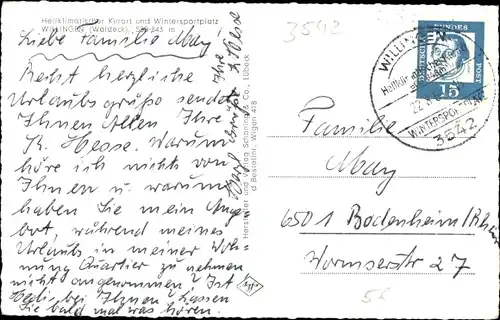 Heilklimatischer Kurort und Wintersportplatz
WILLINGEN (Waldeck), 550-845 m
Liebe Familie May!
Recht herzliche
Urlaubsgrüße sendet
Ihnen Allen Ihre
K. Hesse. Warum
höre ich nichts von
Ihnen u warum
haben Sie mein Ange
bot, während meines
Urlaubs in meiner Woh-
nung Quartier zu nehmen
nicht angenommen? Ist
Hedi bei Ihnen? Lassen
Sie bald mal was hören.
Ihre
K. Hesse
Hersteller und Verlag Schöning & Co., Lübeck
Bestellnr. Wilgen 418
3542
DEUTSCHE BUNDESPOST
15
WILLINGEN
22.
WINTERSPORTPLATZ
3542
Familie
May
6501 Bodenheim/Rhein
Wormserstr 27